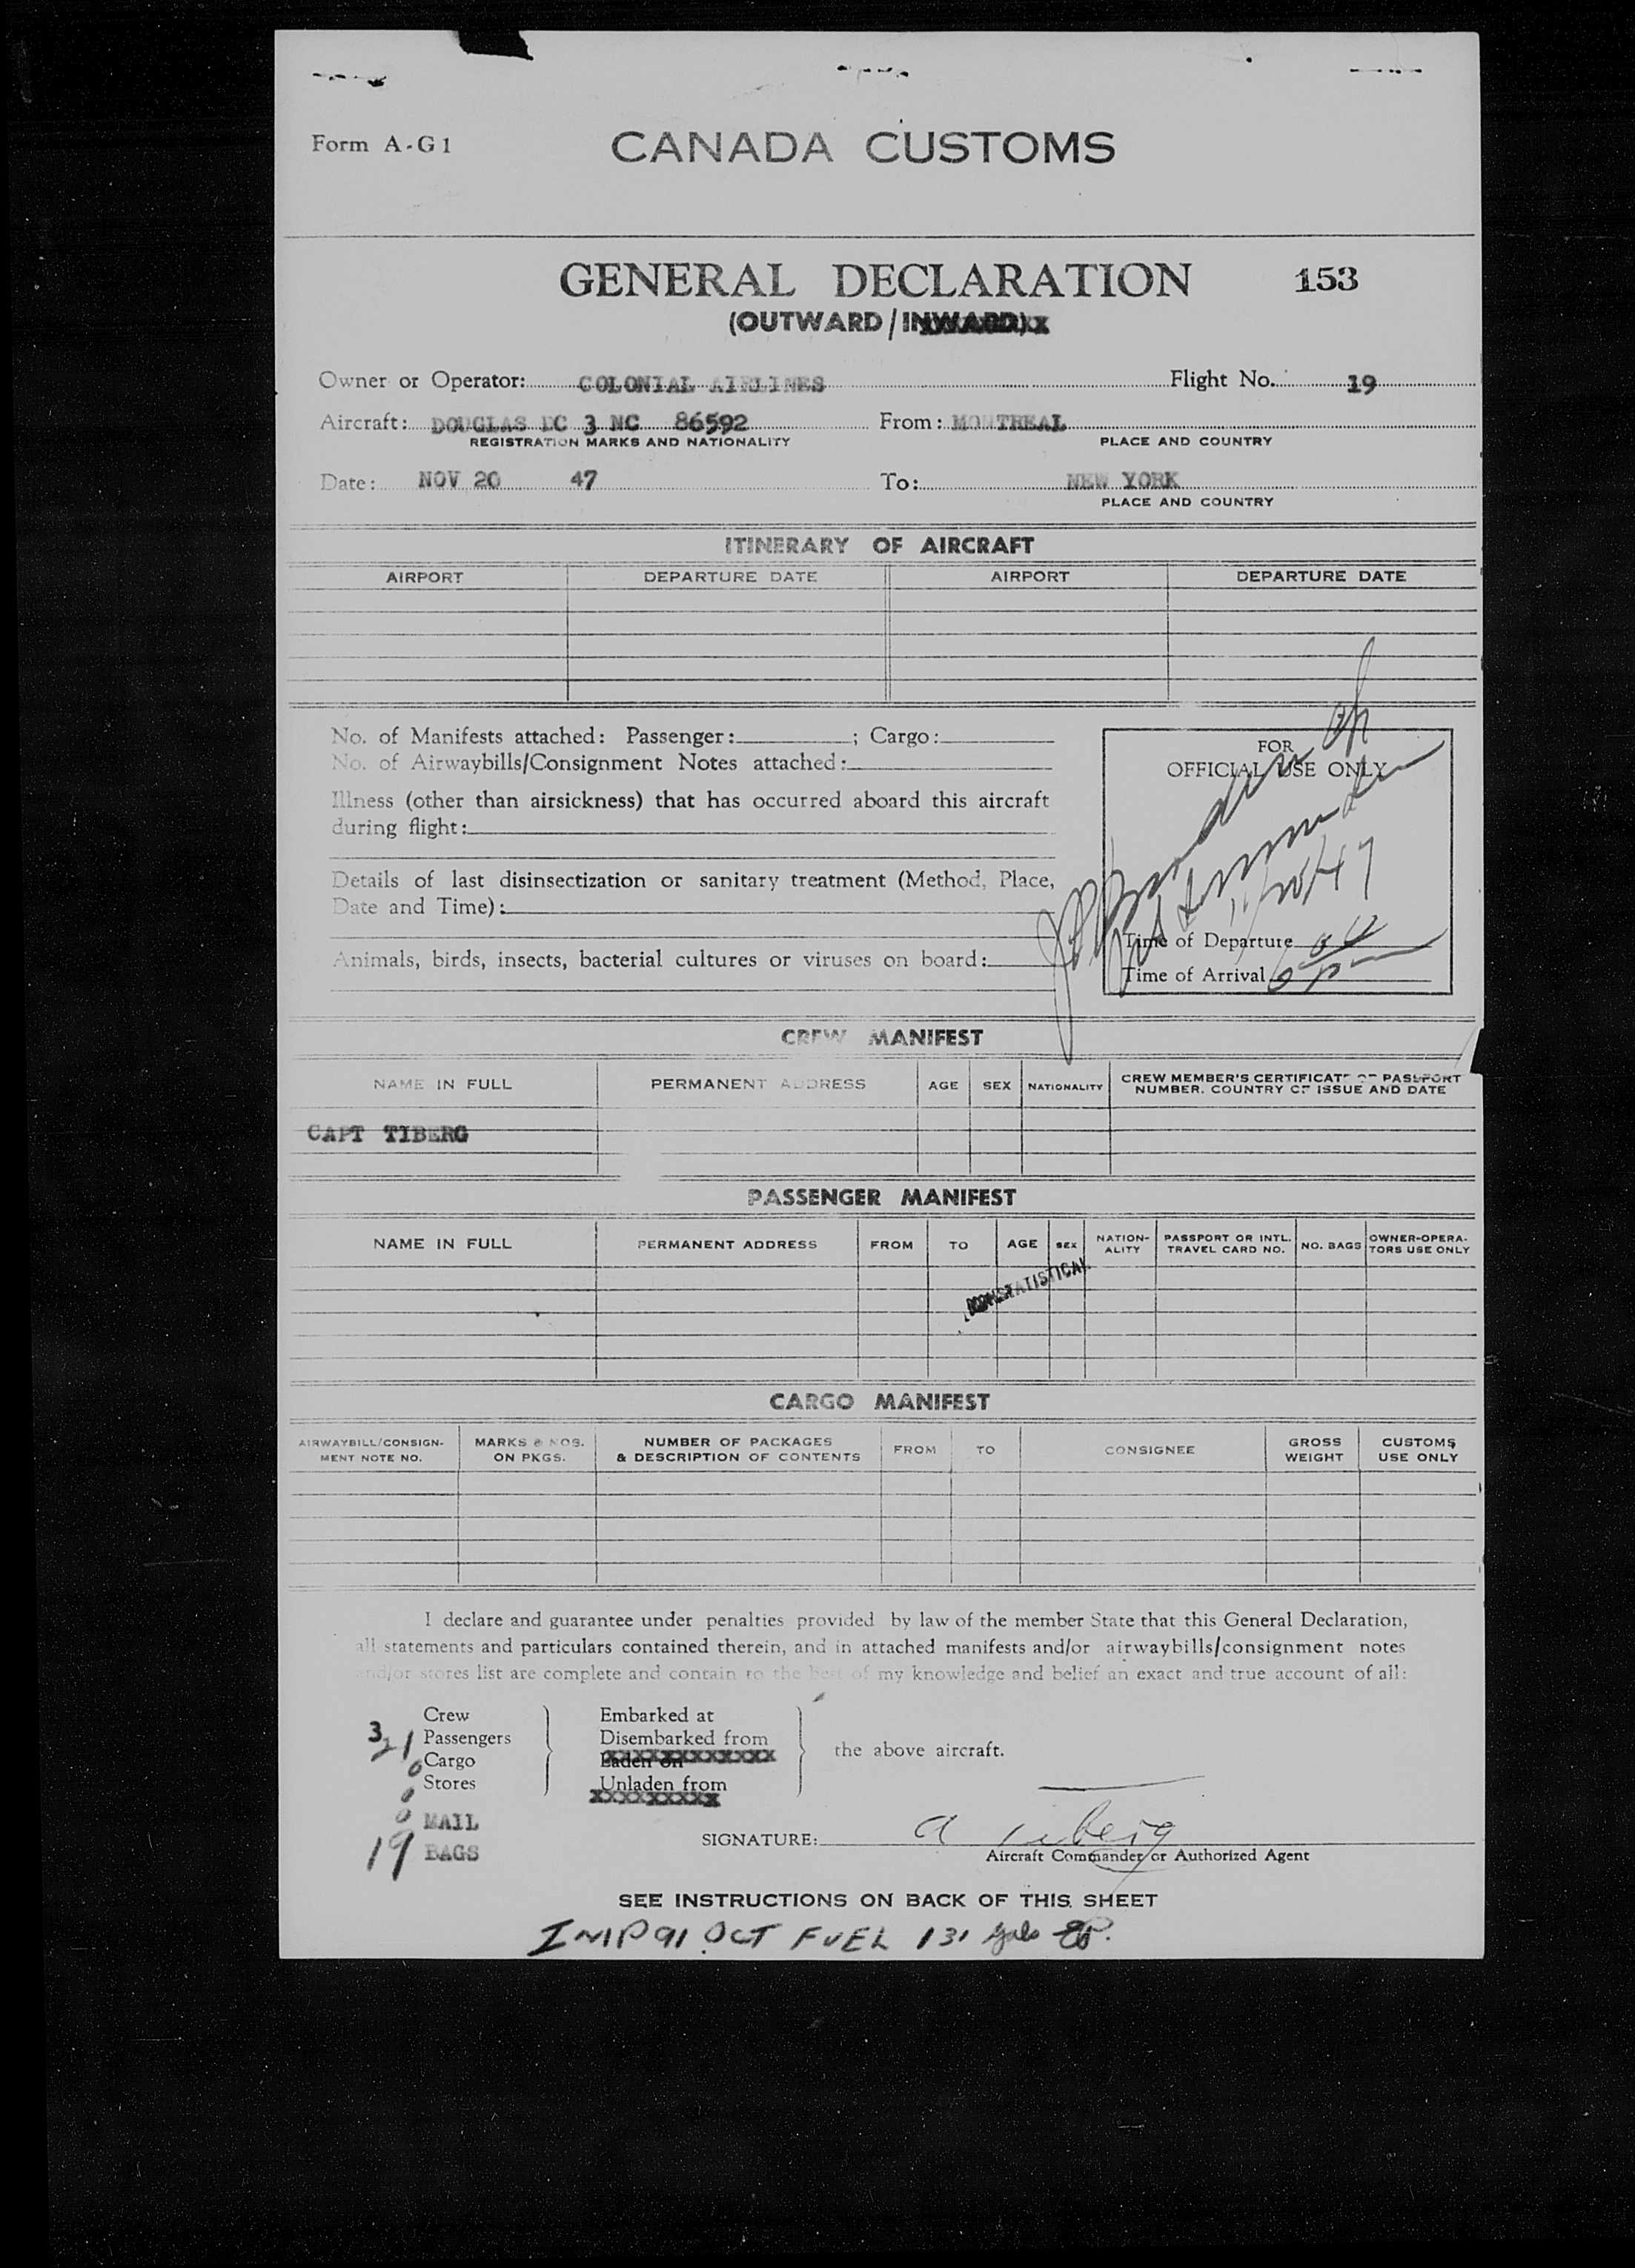 Form A-G1
CANADA CUSTOMS
GENERAL DECLARATION 153
(OUTWARD/INWARD)
Owner or Operator: COLONIAL AIRLINES Flight No. 19
Aircraft: DOUGLAS DC 3 NC 86592 From: MONTREAL
REGISTRATION MARKS AND NATIONALITY PLACE AND COUNTRY
Date: NOV 20 47 To: NEW YORK
PLACE AND COUNTRY
ITINERARY OF AIRCRAFT
AIRPORT DEPARTURE DATE AIRPORT DEPARTURE DATE
No. of Manifests attached: Passenger: ; Cargo:
No. of Airwaybills/Consignment Notes attached:
Illness (other than airsickness) that has occurred aboard this aircraft
during flight:
Details of last disinsectization or sanitary treatment (Method, Place,
Date and Time):
Animals, birds, insects, bacterial cultures or viruses on board:
FOR
OFFICIAL USE ONLY
11/20/47
Time of Departure
Time of Arrival
CREW MANIFEST
NAME IN FULL PERMANENT ADDRESS AGE SEX NATIONALITY CREW MEMBER'S CERTIFICATE OR PASSPORT
NUMBER, COUNTRY OF ISSUE AND DATE
CAPT TIBERG
PASSENGER MANIFEST
NAME IN FULL PERMANENT ADDRESS FROM TO AGE SEX NATION-
ALITY PASSPORT OR INTL.
TRAVEL CARD NO. NO. BAGS OWNER-OPERA-
TORS USE ONLY
NON-STATISTICAL
CARGO MANIFEST
AIRWAYBILL/CONSIGN-
MENT NOTE NO. MARKS & NOS.
ON PKGS. NUMBER OF PACKAGES
& DESCRIPTION OF CONTENTS FROM TO CONSIGNEE GROSS
WEIGHT CUSTOMS
USE ONLY
I declare and guarantee under penalties provided by law of the member State that this General Declaration,
all statements and particulars contained therein, and in attached manifests and/or airwaybills/consignment notes
and/or stores list are complete and contain to the best of my knowledge and belief an exact and true account of all:
3 Crew Embarked at
21 Passengers Disembarked from
0 Cargo Laden on the above aircraft.
0 Stores Unladen from
0 MAIL
19 BAGS
SIGNATURE: a Tiberg
Aircraft Commander or Authorized Agent
SEE INSTRUCTIONS ON BACK OF THIS SHEET
IMP 91 OCT FUEL 131 gals